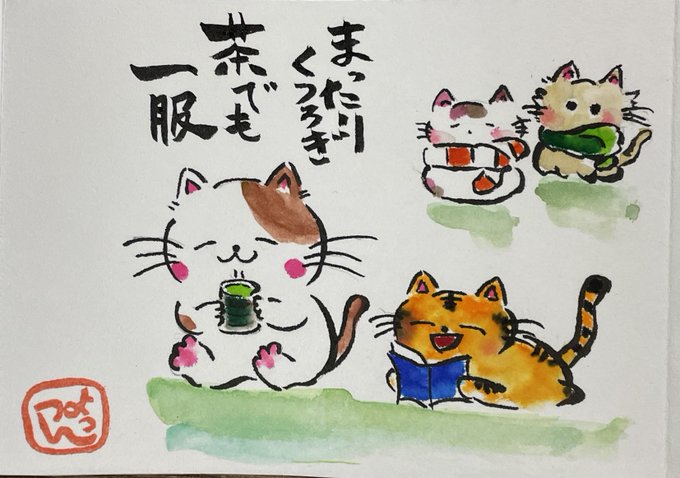 まったり
くつろぎ
茶でも
一服